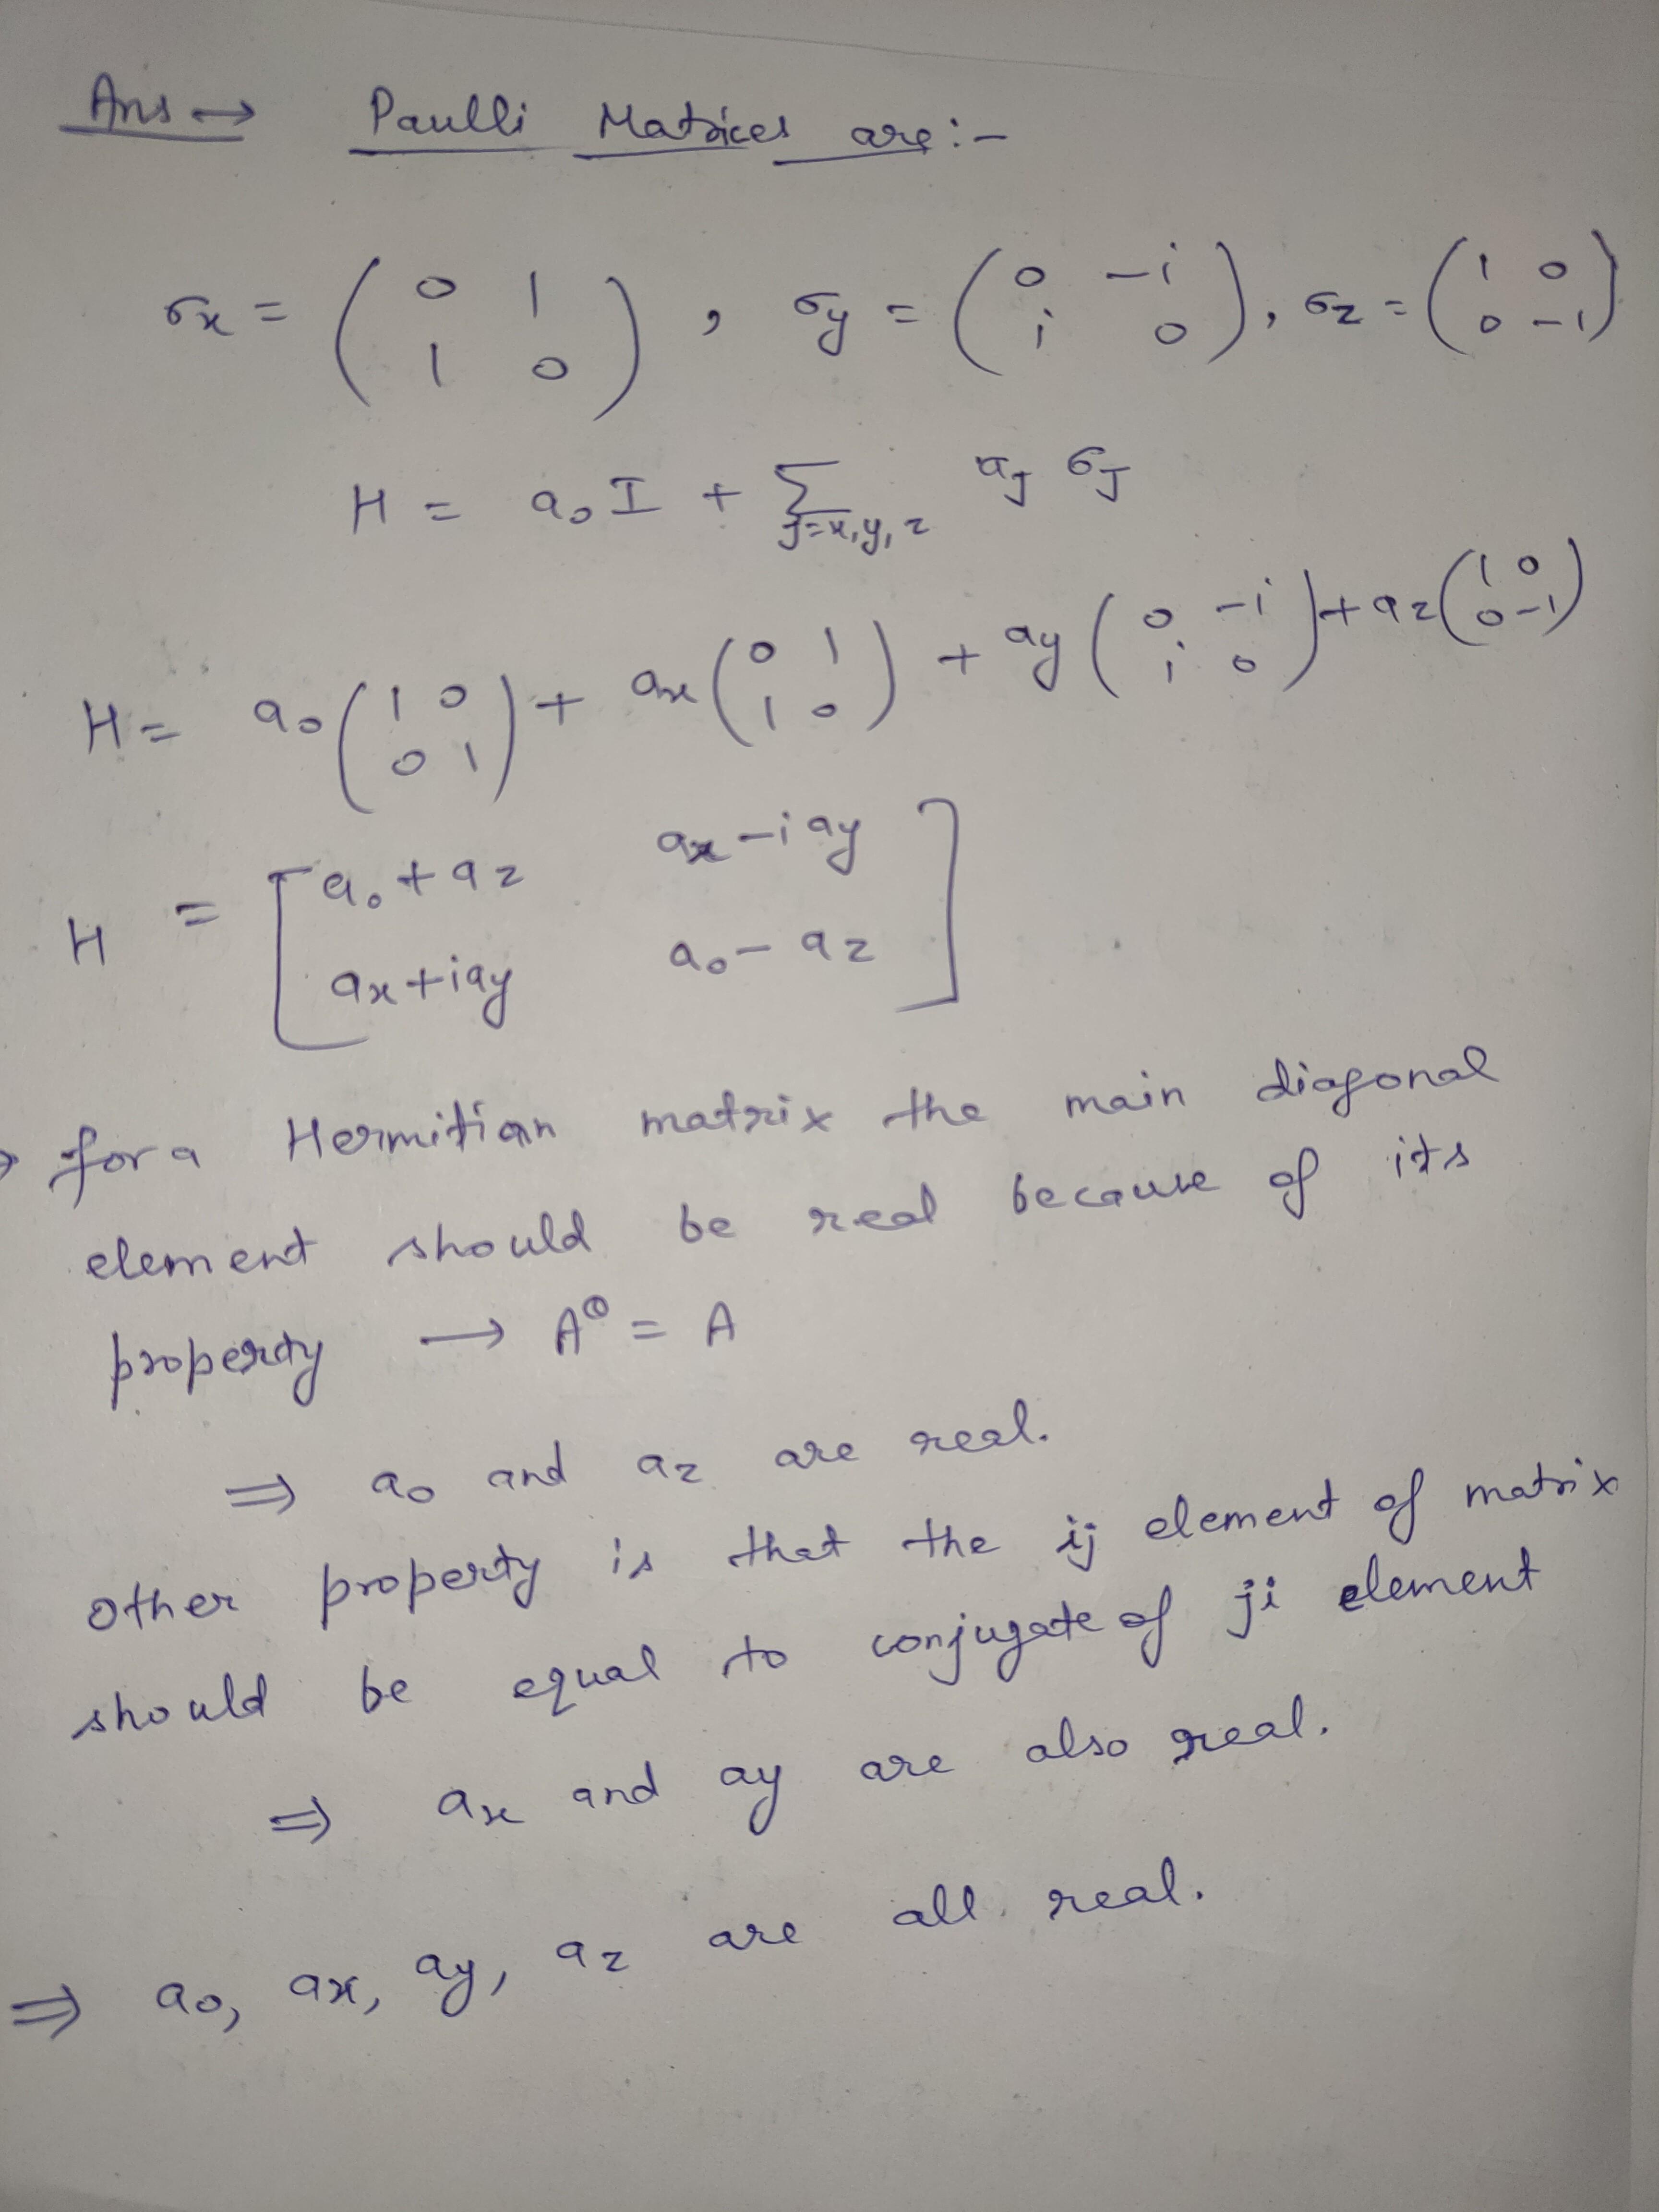 Ans → Paulli Matrices are :-
σx = ( 0 1 1 0 ) , σy = ( 0 -i i 0 ) , σz = ( 1 0 0 -1 )
H = a₀ I + Σ j=x,y,z aj σj
H = a₀ ( 1 0 0 1 ) + ax ( 0 1 1 0 ) + ay ( 0 -i i 0 ) + az ( 1 0 0 -1 )
H = [ a₀+az ax-iay
ax+iay a₀-az ]
→ for a Hermitian matrix the main diagonal
element should be real because of its
property → A^θ = A
⇒ a₀ and az are real.
other property is that the ij element of matrix
should be equal to conjugate of ji element
⇒ ax and ay are also real.
⇒ a₀, ax, ay, az are all real.